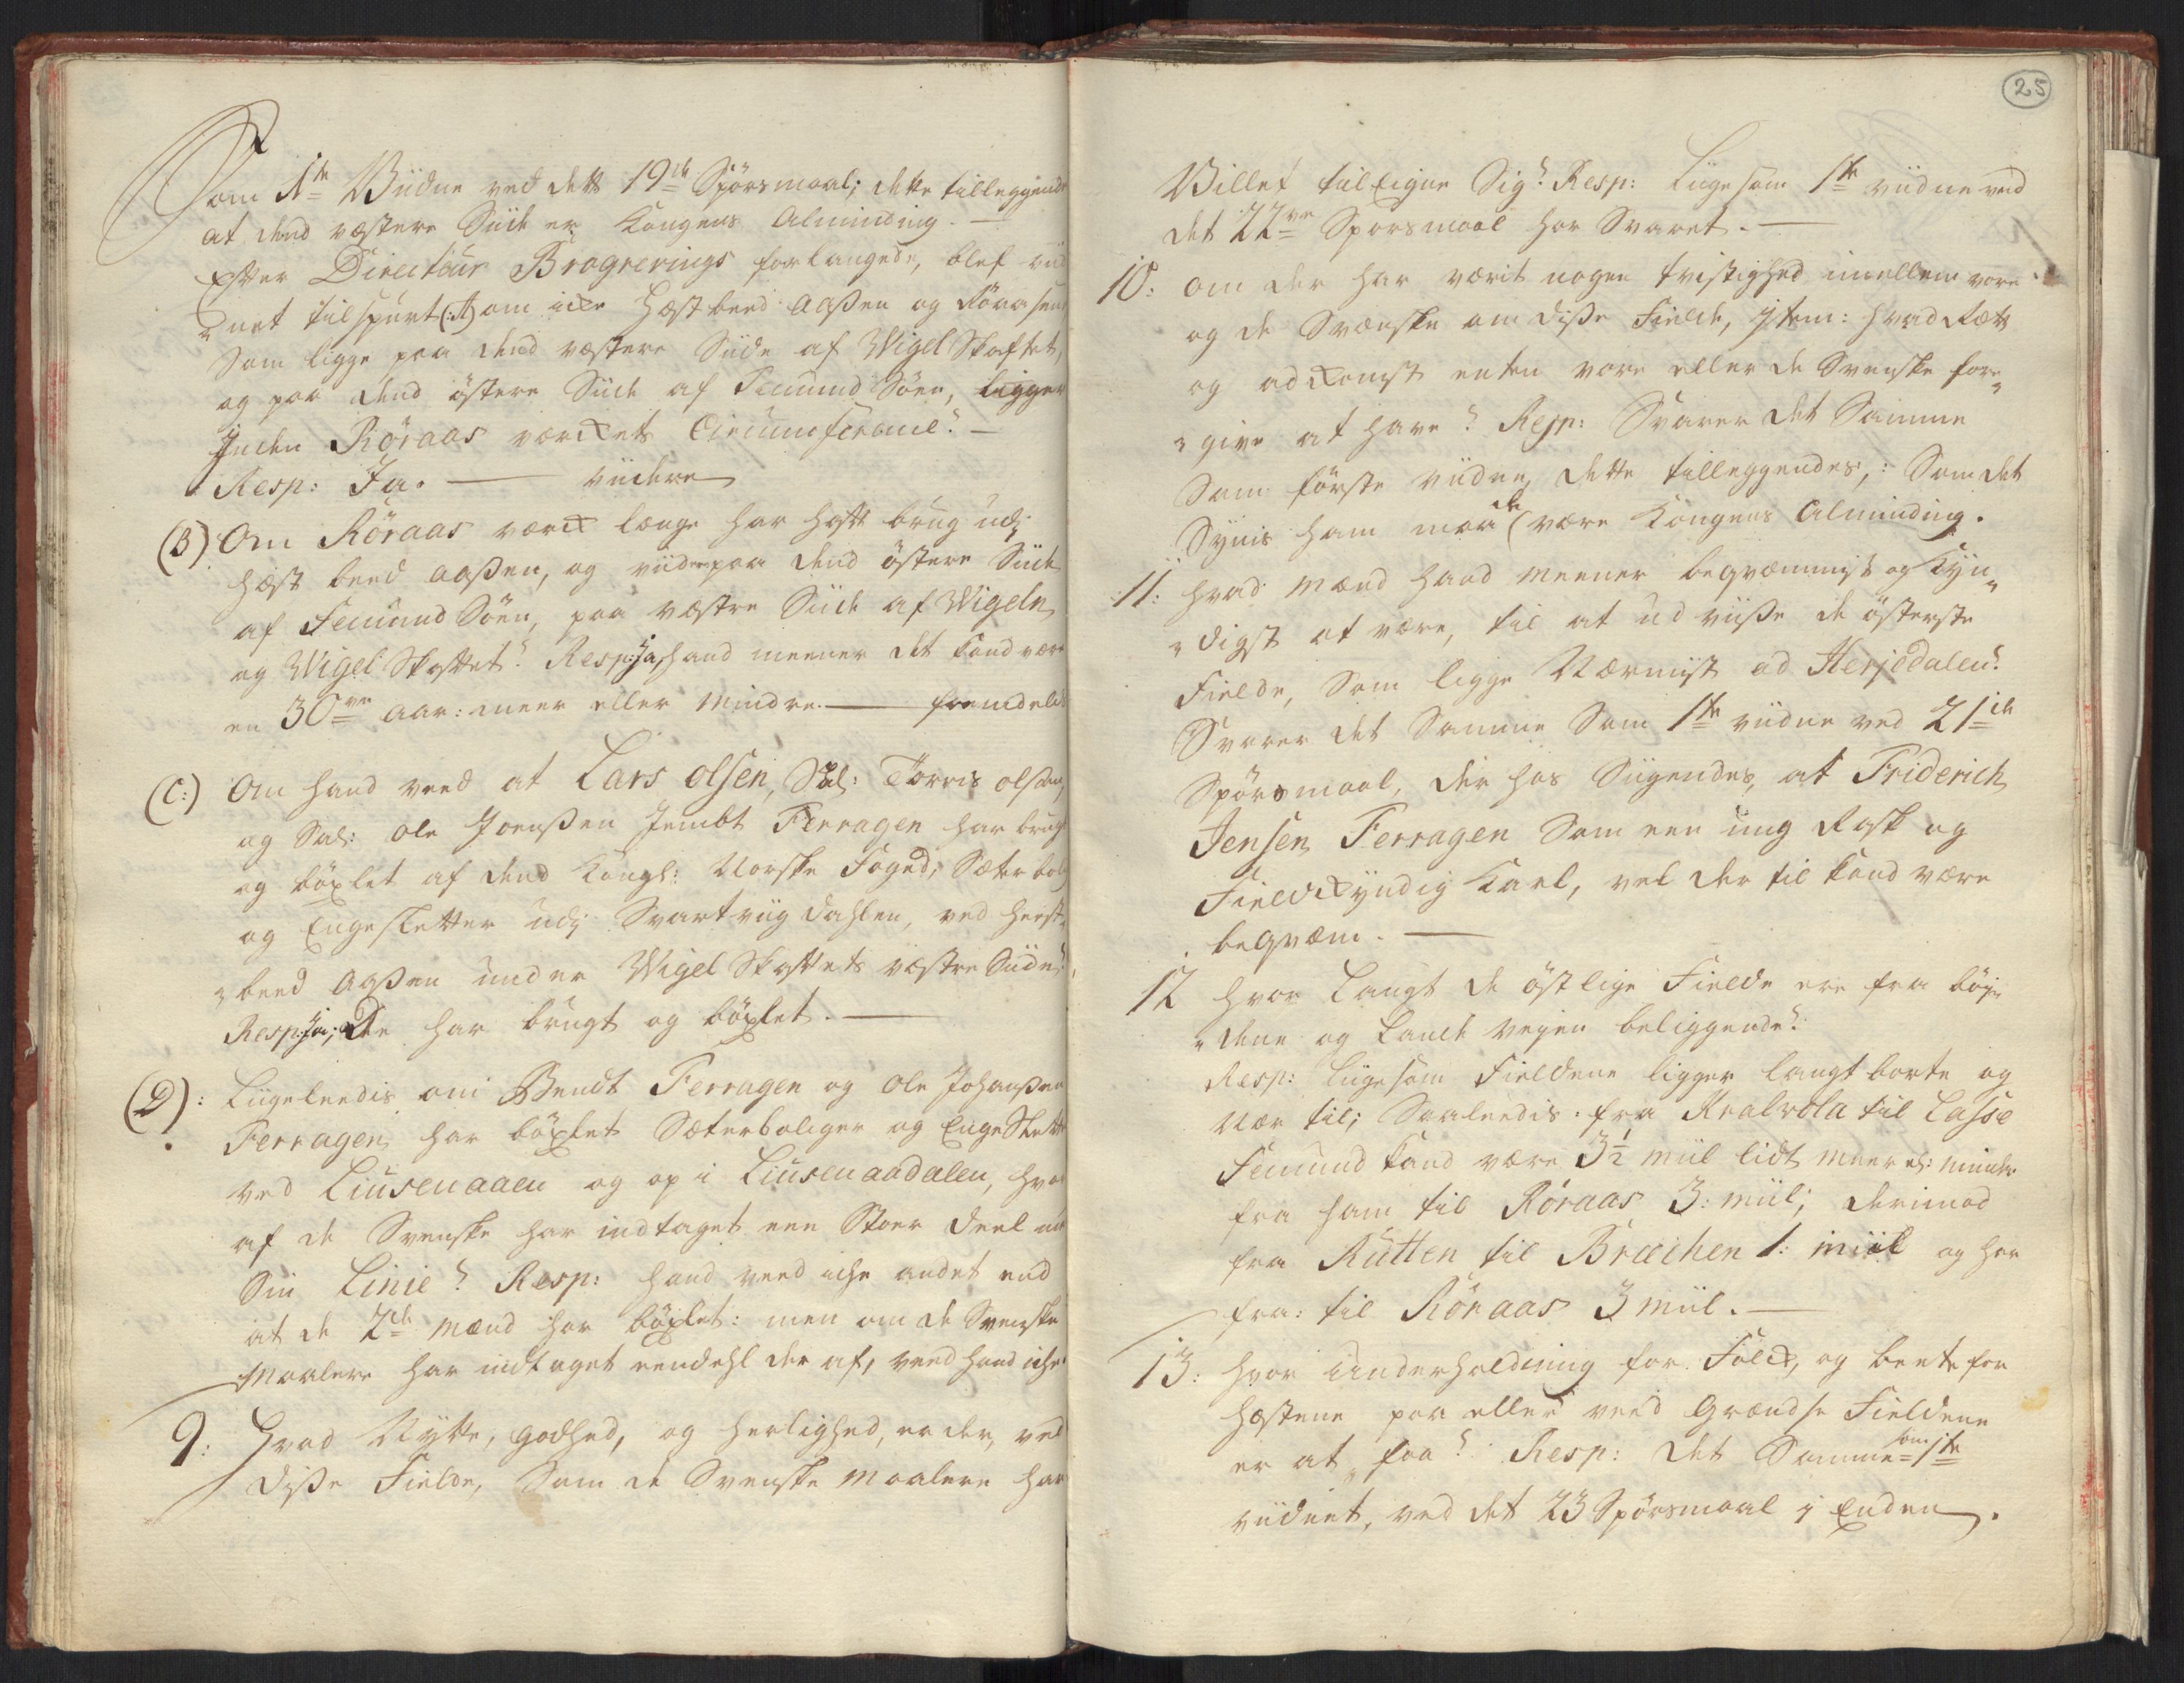 Som 1te Viidne ved dett 19de Spörsmaal; dette tilleggende
at dend westere Siide er Kongens Alminding. —
Efter Directeur Brogrerings forlangende, blef viid
net tilspurt (:A) om icke Hæstbeed Aaßen og
Som ligge paa dend westere Siide af Wigel Skaftet,
og paa dend östere Siide af Femund Söen, ligger
Inden Röraas wærckets Circumference? —
Resp: Ja. — viidere
(B) Om Röraas wærck længe har haft brug udj
Hæst beed Aaßen, og viidere paa dend östere Siide
af Femund Söen, paa westre Siide af Wigeln
og Wigel Skaftet? Resp: Ja, hand meener det kand være
en 30ve Aar: meer eller mindre. — fremdelis
(C:) Om hand veed at Lars Olsen, Sal: Torris Olsen,
og Sal: Ole Joenßen Jembt Ferragen har brugt
og böxlet af dend Kongl: Norske Foged, Sæterbol
og Engesletter udj Svartviig dahlen, ved Hæst
beed Aaßen under Wigel Skaftets westre Siide?
Resp: Ja; De har brugt og böxlet. —
(D): Liigeleedis om Bendt Ferragen og Ole Johanßen
Ferragen har böxlet Sæterboliger og Enge Slette
ved Liusenaaen og op i Liusenaadalen, hvor
af de Svenske har indtaget een Stoer deel
Sin Linie? Resp: hand veed iche andet end
at de 2de mænd har böxlet: men om de Svenske
Maalere har indtaget eendehl der af, veed hand iche
9: Hvad Nytte, godhed, og herlighed, er der, ved
diße Fielde, Som de Svenske Maalere har
25
Villet tileigne Sig? Resp: Liigesom 1te viidne ved
det 22ve Sporsmaal har Svaret. —
10: Om der har værit nogen tvistighed imellem vore
og de Svenske om diße Fielde, Item: hvad Ræt
og adkomst enten vore eller de Svenske fore
give at have? Resp: Svarer det Samme
Som förste viidne, dette tilleggendes,: Som det
Synis ham maa de være Kongens Alminding.
11: Hvad mænd hand meener beqvæmmist og Kyn
digst at være, til at udviiße de österste
Fielde, Som ligge Nærmist ad Herjedalen?
Svarer det Samme Som 1te viidne ved 21de
Spörsmaal, der hos Siigendes, at Friderich
Jensen Ferragen Som een ung Rask og
Fieldkyndig Karl, vel der til kand være
beqvæm. —
12 Hvor Langt de östlige Fielde ere fra böy
dene og Lande veyen beliggende?
Resp: Liigesom Fieldene ligger langt borte og
Nær til; Saaleedis fra Kralvola til Lasse
Femund kand være 3½ miil lidt meer el: mindre
fra ham til Röraas 3: miil; derimod
fra Rutten til Brechen 1: miil og her
fra: til Röraas 3 miil. —
13: Hvor Underholdning for Folck, og beete for
Hæstene paa eller veed Grændse Fieldene
er at faa? Resp: Det Samme som 1te
viidnet, ved det 23 Spörsmaal i Enden.